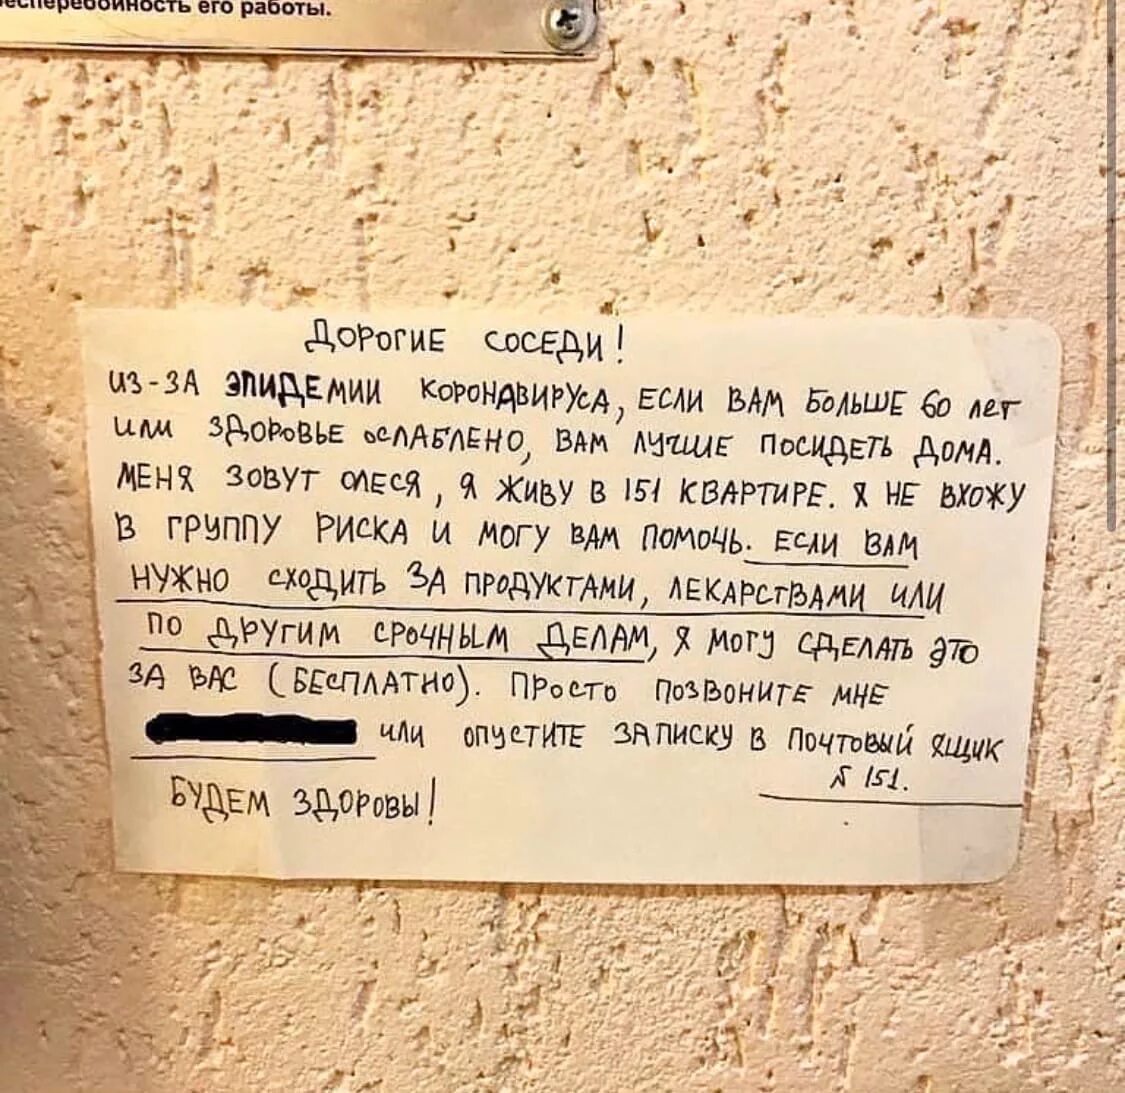 бесперебойность его работы.
ДОРОГИЕ СОСЕДИ!
ИЗ-ЗА ЭПИДЕМИИ КОРОНАВИРУСА, ЕСЛИ ВАМ БОЛЬШЕ 60 ЛЕТ
ИЛИ ЗДОРОВЬЕ ОСЛАБЛЕНО, ВАМ ЛУЧШЕ ПОСИДЕТЬ ДОМА.
МЕНЯ ЗОВУТ ОЛЕСЯ, Я ЖИВУ В 151 КВАРТИРЕ. Я НЕ ВХОЖУ
В ГРУППУ РИСКА И МОГУ ВАМ ПОМОЧЬ. ЕСЛИ ВАМ
НУЖНО СХОДИТЬ ЗА ПРОДУКТАМИ, ЛЕКАРСТВАМИ ИЛИ
ПО ДРУГИМ СРОЧНЫМ ДЕЛАМ, Я МОГУ СДЕЛАТЬ ЭТО
ЗА ВАС (БЕСПЛАТНО). ПРОСТО ПОЗВОНИТЕ МНЕ
ИЛИ ОПУСТИТЕ ЗАПИСКУ В ПОЧТОВЫЙ ЯЩИК
№ 151.
БУДЕМ ЗДОРОВЫ!